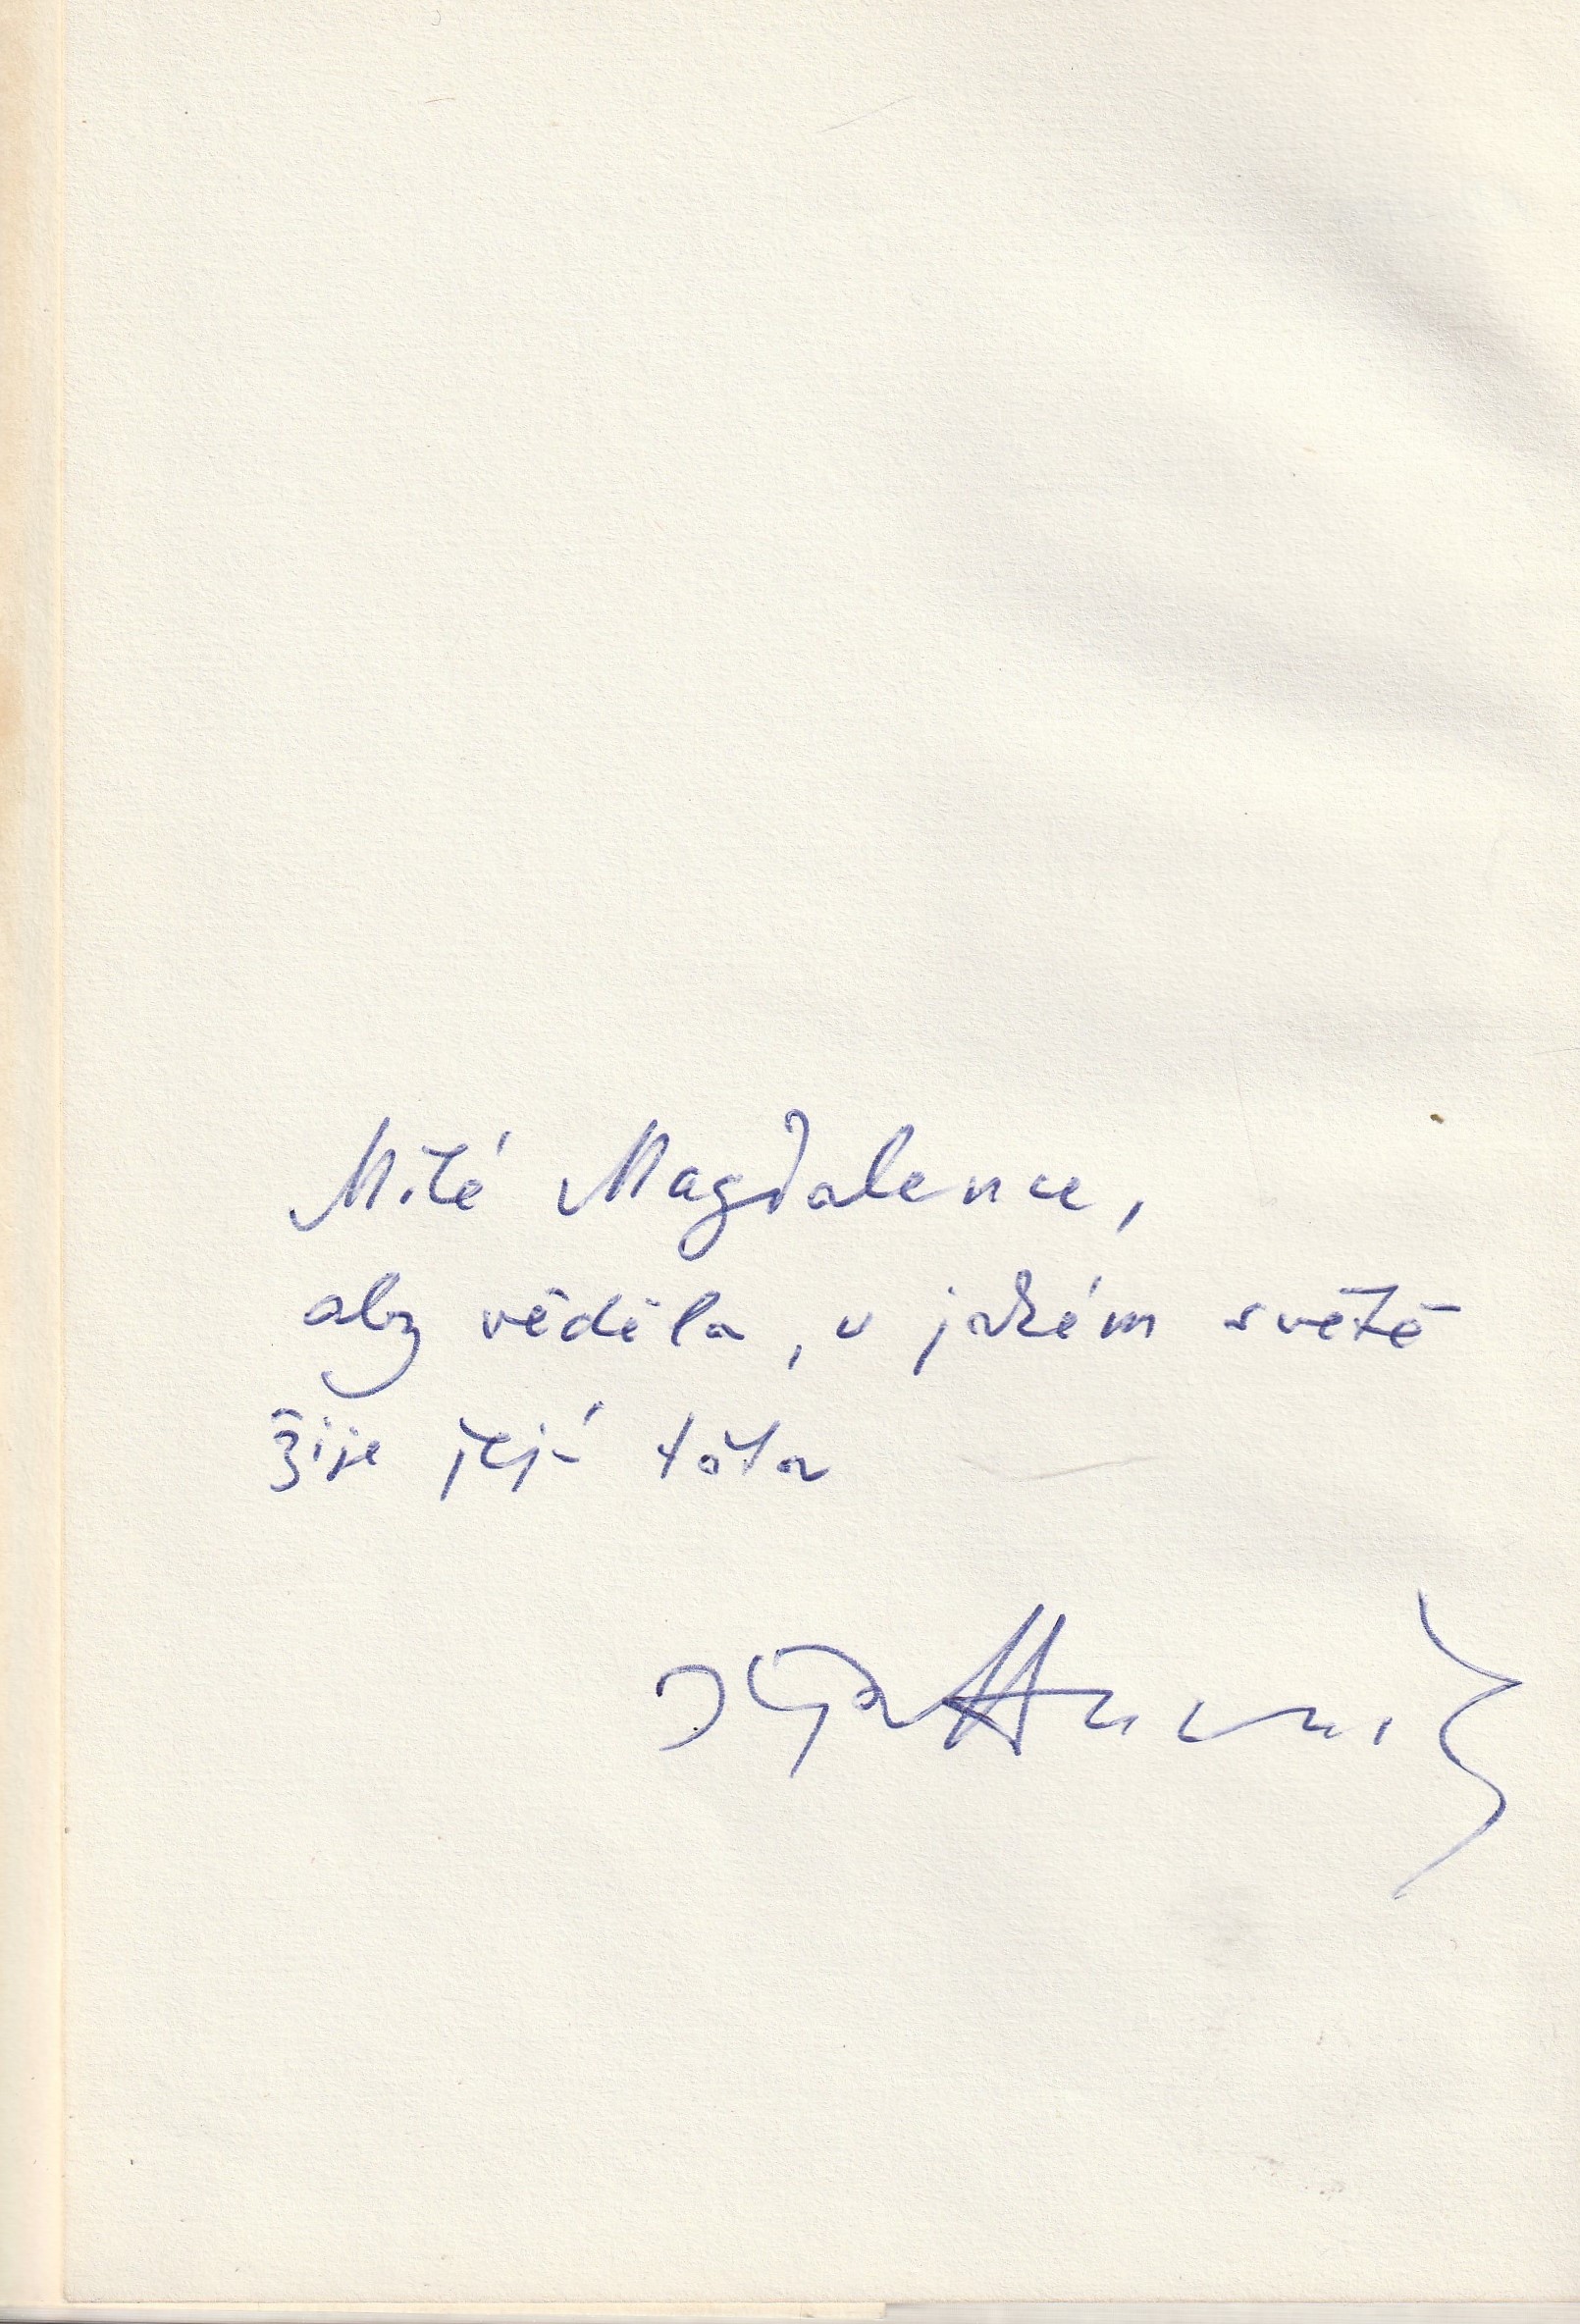 Milé Magdalence,
aby věděla, v jakém světě
žije její táta
Ilja Hurník